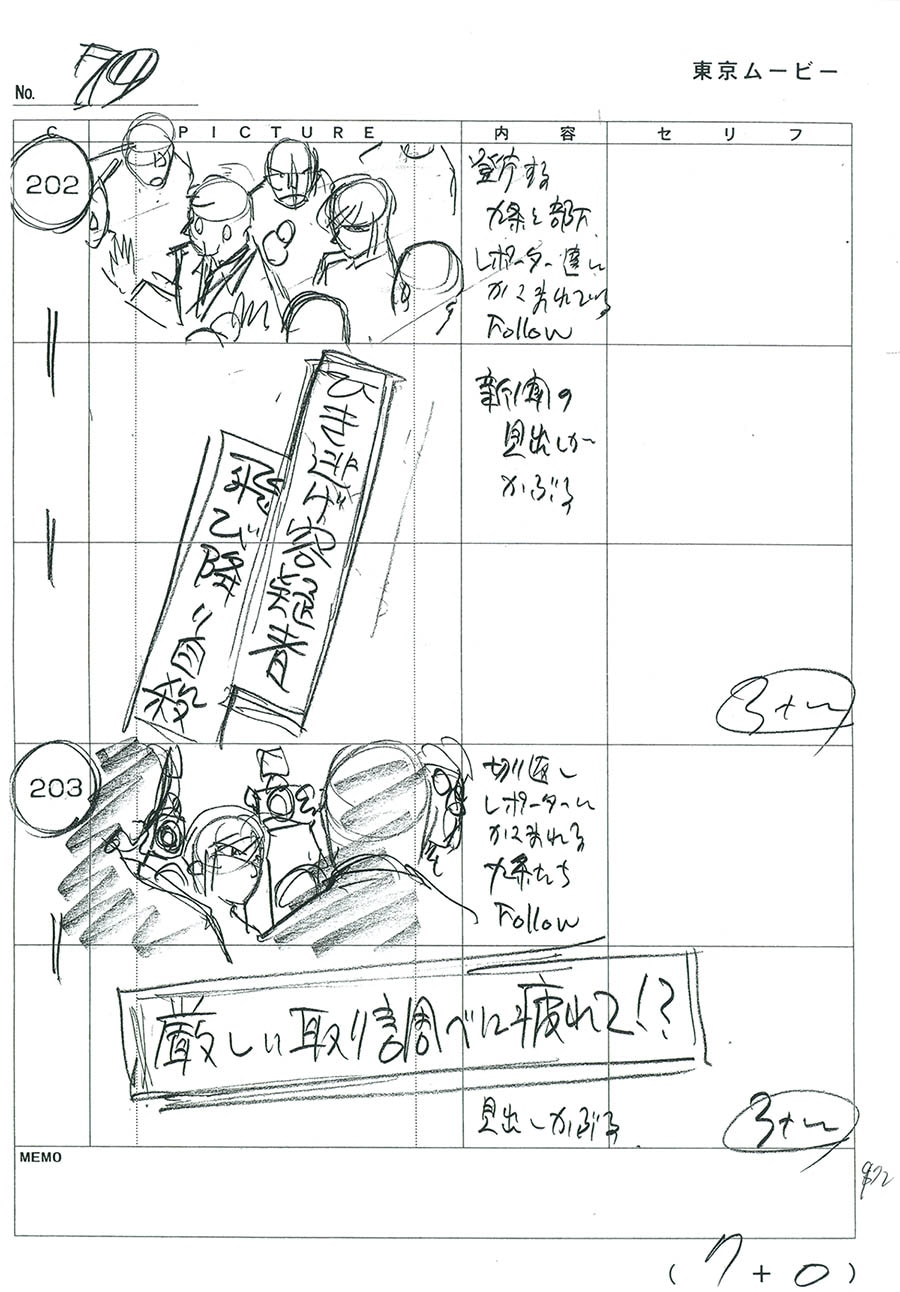 No. 79
東京ムービー
C PICTURE 内容 セリフ
202
登庁する
九条と部下
レポーター達に
かこまれている
Follow
新聞の
見出しが
かぶる
ひき逃げ容疑者
飛び降り自殺
203
切り返し
レポーターに
かこまれる
九条たち
Follow
厳しい取り調べに疲れて!?
見出しかぶる
MEMO
(7+0)